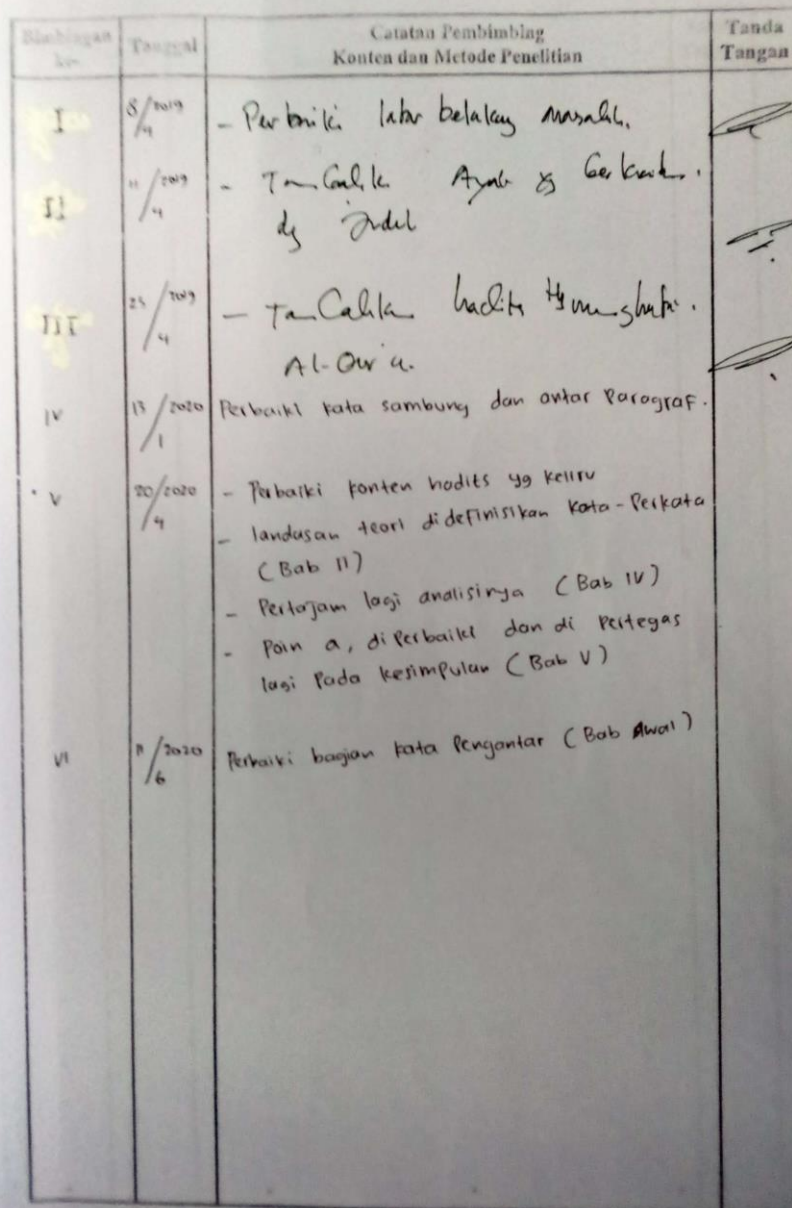 Bimbingan ke- Tanggal Catatan Pembimbing Konten dan Metode Penelitian Tanda Tangan
I 8/2019/4 - Perbaiki latar belakang masalah.
II 11/2019/4 - Tambahk Ayat yg berkait.
dg judul
III 25/2019/4 - Tambahka hadits
Al-Qur'a.
IV 13/2020/1 Perbaiki kata sambung dan antar Paragraf.
V 20/2020/4 - Perbaiki konten hadits yg keliru
- landasan teori didefinisikan kata-Perkata
(Bab II)
- Pertajam lagi analisinya (Bab IV)
- Poin a, diPerbaiki dan di Pertegas
lagi Pada kesimpulan (Bab V)
VI 11/2020/6 Perbaiki bagian kata Pengantar (Bab Awal)